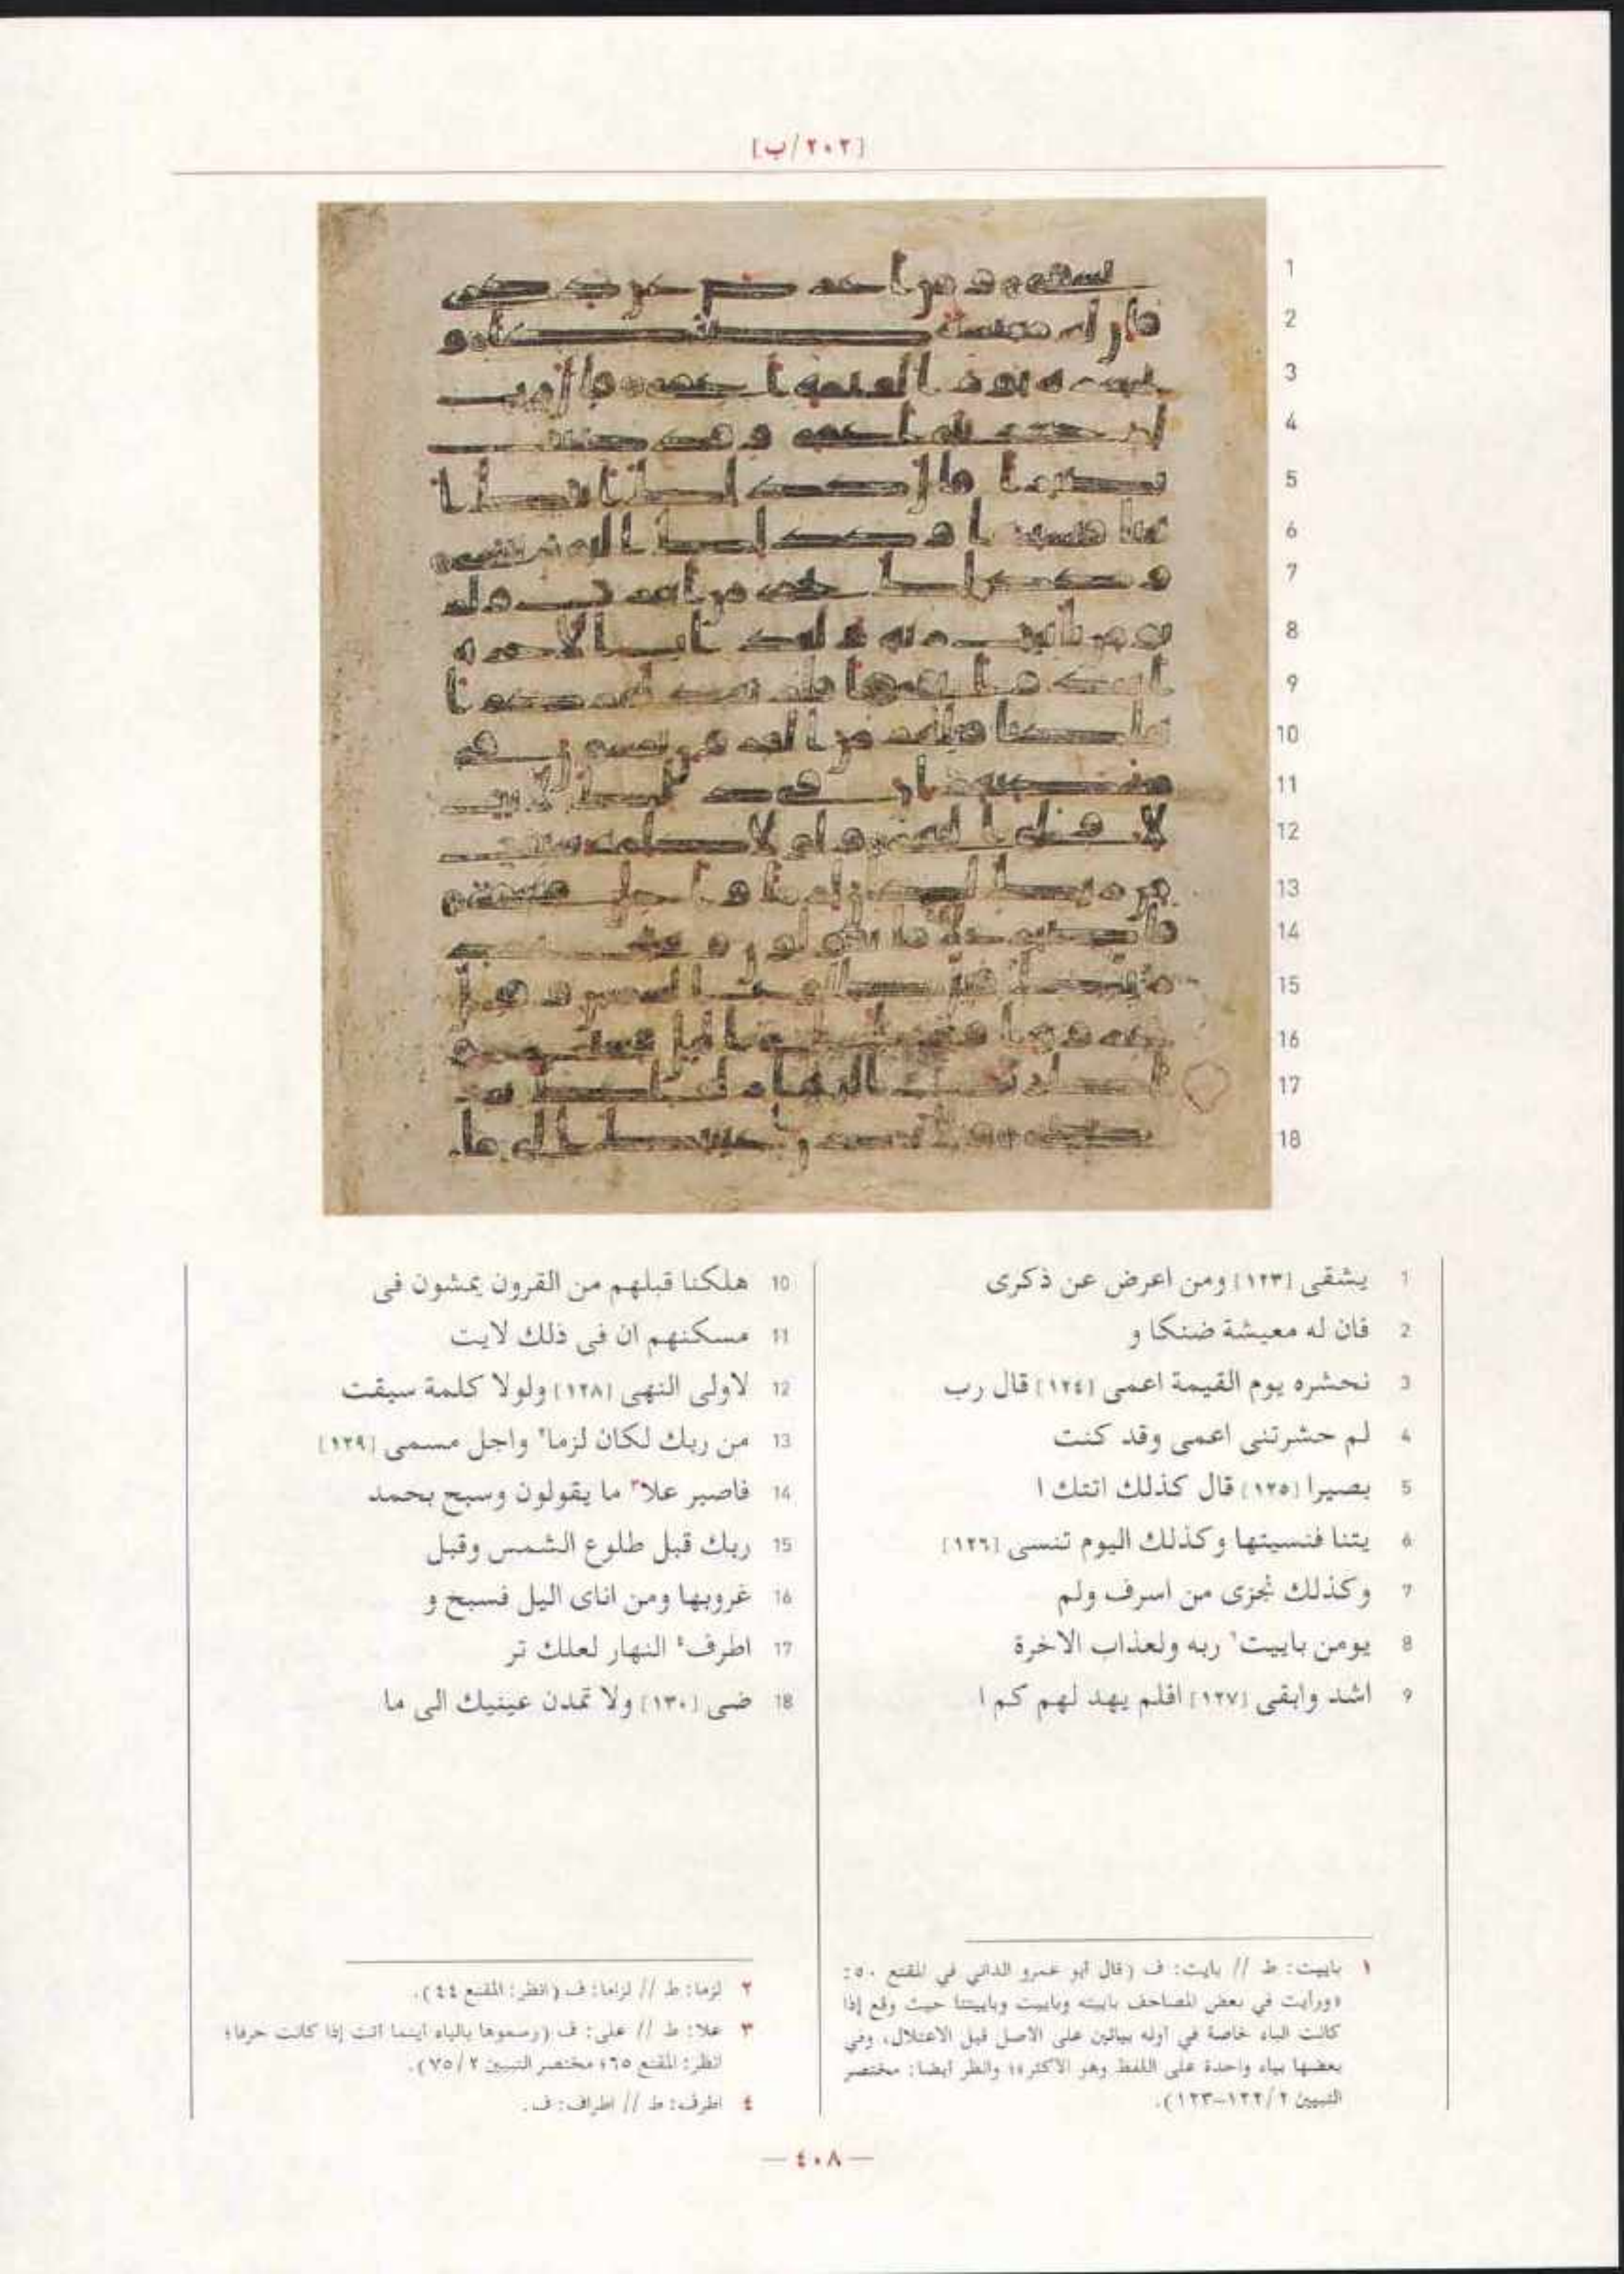 [٢٠٢/ب]
1
2
3
4
5
6
7
8
9
10
11
12
13
14
15
16
17
18
1 يشقى [١٢٣] ومن اعرض عن ذكرى
2 فان له معيشة ضنكا و
3 نحشره يوم القيمة اعمى [١٢٤] قال رب
4 لم حشرتنى اعمى وقد كنت
5 بصيرا [١٢٥] قال كذلك اتتك ا
6 يتنا فنسيتها وكذلك اليوم تنسى [١٢٦]
7 وكذلك نجزى من اسرف ولم
8 يومن باييت١ ربه ولعذاب الاخرة
9 اشد وابقى [١٢٧] افلم يهد لهم كم ا
10 هلكنا قبلهم من القرون يمشون فى
11 مسكنهم ان فى ذلك لايت
12 لاولى النهى [١٢٨] ولولا كلمة سبقت
13 من ربك لكان لزما٢ واجل مسمى [١٢٩]
14 فاصبر علا٣ ما يقولون وسبح بحمد
15 ربك قبل طلوع الشمس وقبل
16 غروبها ومن اناى اليل فسبح و
17 اطرف٤ النهار لعلك تر
18 ضى [١٣٠] ولا تمدن عينيك الى ما
١ باييت: ط // بايت: ف (قال أبو عمرو الداني في المقنع ٥٠:
«ورأيت في بعض المصاحف باييته وباييت وباييتنا حيث وقع إذا
كانت الباء خاصة في أوله بيائين على الاصل قبل الاعتلال، وفي
بعضها بياء واحدة على اللفظ وهو الاكثر»؛ وانظر أيضا: مختصر
التبيين ١٢٢/٢-١٢٣).
٢ لزما: ط // لزاما: ف (انظر: المقنع ٤٤).
٣ علا: ط // على: ف (رسموها بالياء أينما أتت إذا كانت حرفا؛
انظر: المقنع ٦٥؛ مختصر التبيين ٧٥/٢).
٤ اطرف: ط // اطراف: ف.
— ٤٠٨ —